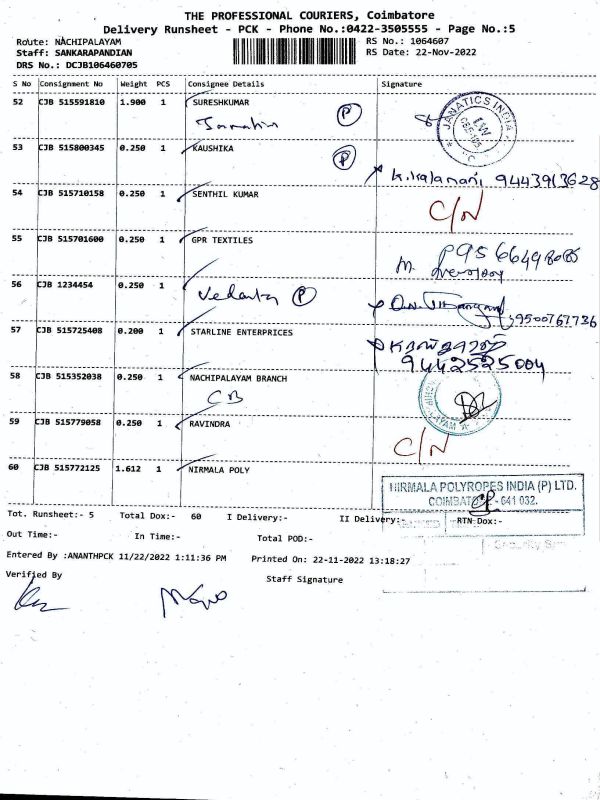 THE PROFESSIONAL COURIERS, Coimbatore
Delivery Runsheet - PCK - Phone No.:0422-3505555 - Page No.:5
Route: NACHIPALAYAM RS No.: 1064607
Staff: SANKARAPANDIAN RS Date: 22-Nov-2022
DRS No.: DCJB106460705
S No Consignment No Weight PCS Consignee Details Signature
52 CJB 515591810 1.900 1 SURESHKUMAR
P
JANATICS INDIA
53 CJB 515800345 0.250 1 KAUSHIKA
P
K. Kalamani 9443913628
54 CJB 515710158 0.250 1 SENTHIL KUMAR
C/N
55 CJB 515701600 0.250 1 GPR TEXTILES
56 CJB 1234454 0.250 1
Vedanta P
9500767736
57 CJB 515725408 0.200 1 STARLINE ENTERPRICES
9442525004
58 CJB 515352038 0.250 1 NACHIPALAYAM BRANCH
CB
59 CJB 515779058 0.250 1 RAVINDRA
C/N
60 CJB 515772125 1.612 1 NIRMALA POLY
NIRMALA POLYROPES INDIA (P) LTD.
COIMBATORE - 641 032.
Tot. Runsheet:- 5 Total Dox:- 60 I Delivery:- II Delivery:- RTN Dox:-
Out Time:- In Time:- Total POD:-
Entered By :ANANTHPCK 11/22/2022 1:11:36 PM Printed On: 22-11-2022 13:18:27
Verified By Staff Signature